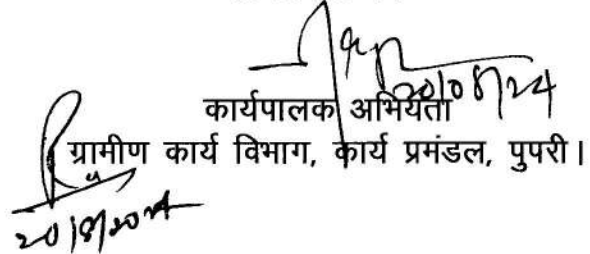 20/08/24
कार्यपालक अभियंता
ग्रामीण कार्य विभाग, कार्य प्रमंडल, पुपरी।
20/8/2024